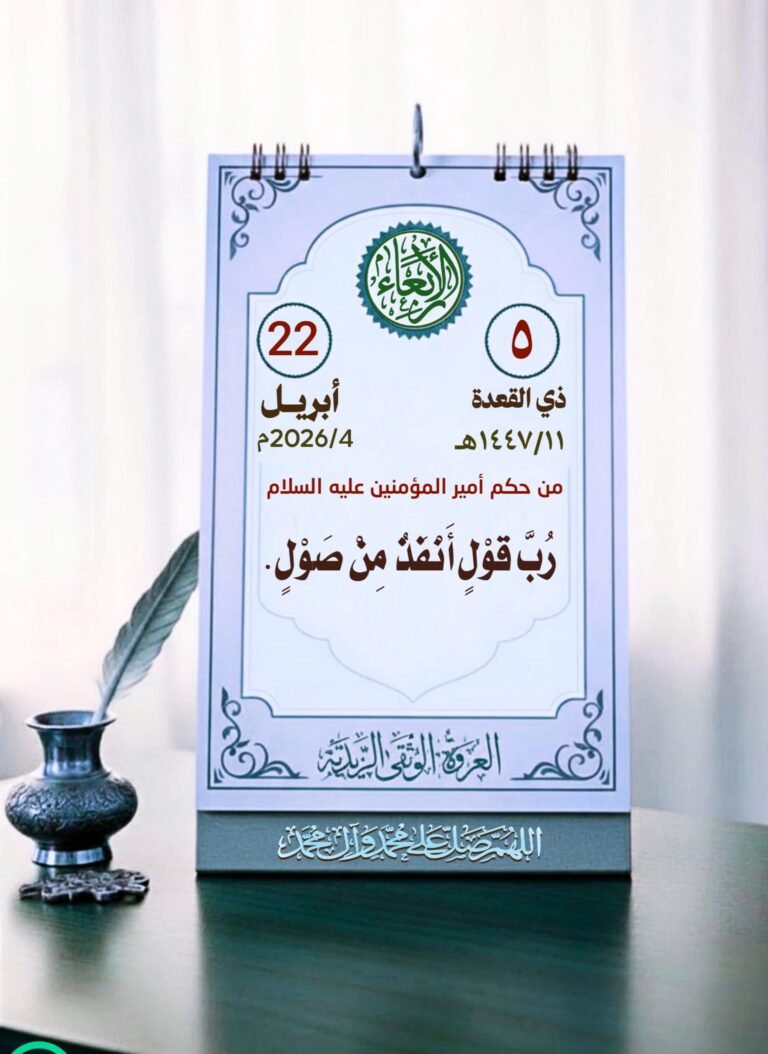 الأربعاء
٥
22
ذي القعدة
أبريل
١٤٤٧/١١هـ
2026/4م
من حكم أمير المؤمنين عليه السلام
رُبَّ قَوْلٍ أَنْفَذُ مِنْ صَوْلٍ.
العروة الوثقى الزيدية
اللهم صل على محمد وآل محمد